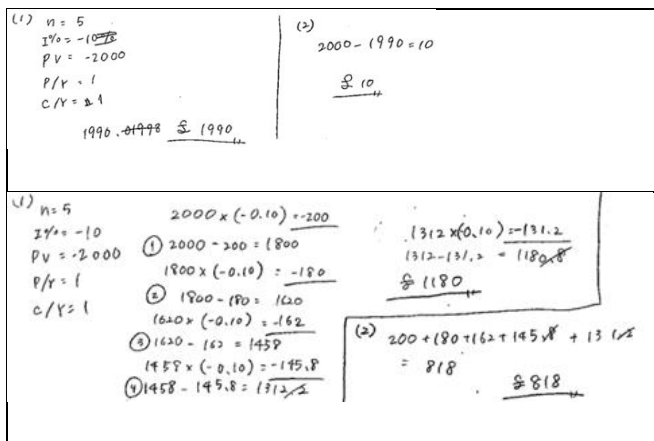 (1) n = 5
I% = -10
PV = -2000
P/Y = 1
C/Y = 1
1990. £ 1990
(2)
2000 - 1990 = 10
£ 10
(1) n = 5
I% = -10
PV = -2000
P/Y = 1
C/Y = 1
2000 × (-0.10) = -200
① 2000 - 200 = 1800
1800 × (-0.10) = -180
② 1800 - 180 = 1620
1620 × (-0.10) = -162
③ 1620 - 162 = 1458
1458 × (-0.10) = -145.8
④ 1458 - 145.8 = 1312.2
1312 × (-0.10) = -131.2
1312 - 131.2 = 1180.8
£ 1180
(2) 200 + 180 + 162 + 145.8 + 131.2
= 818
£ 818